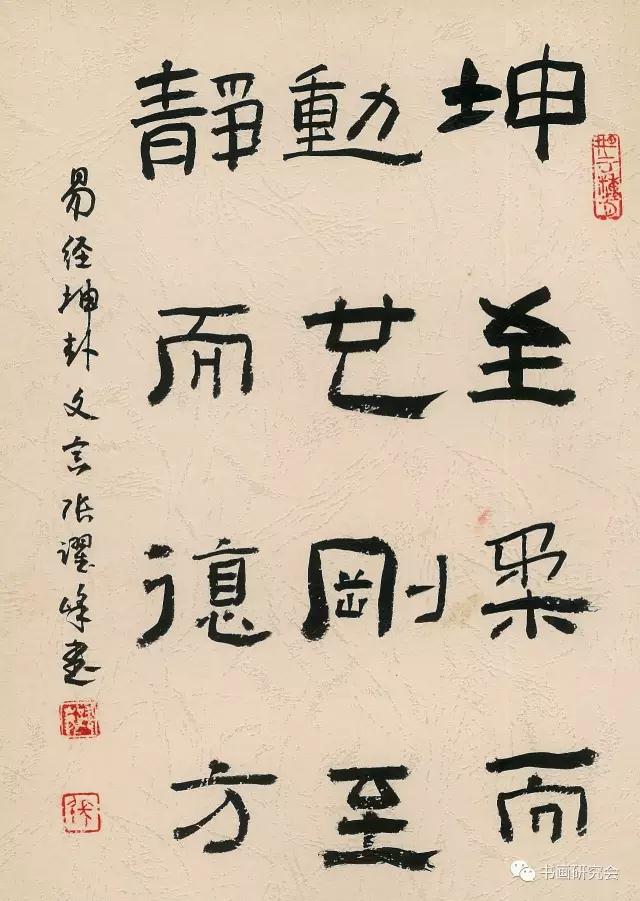 坤至柔而
動也剛至
靜而德方
易経坤卦文言张躍峰书
书画研究会